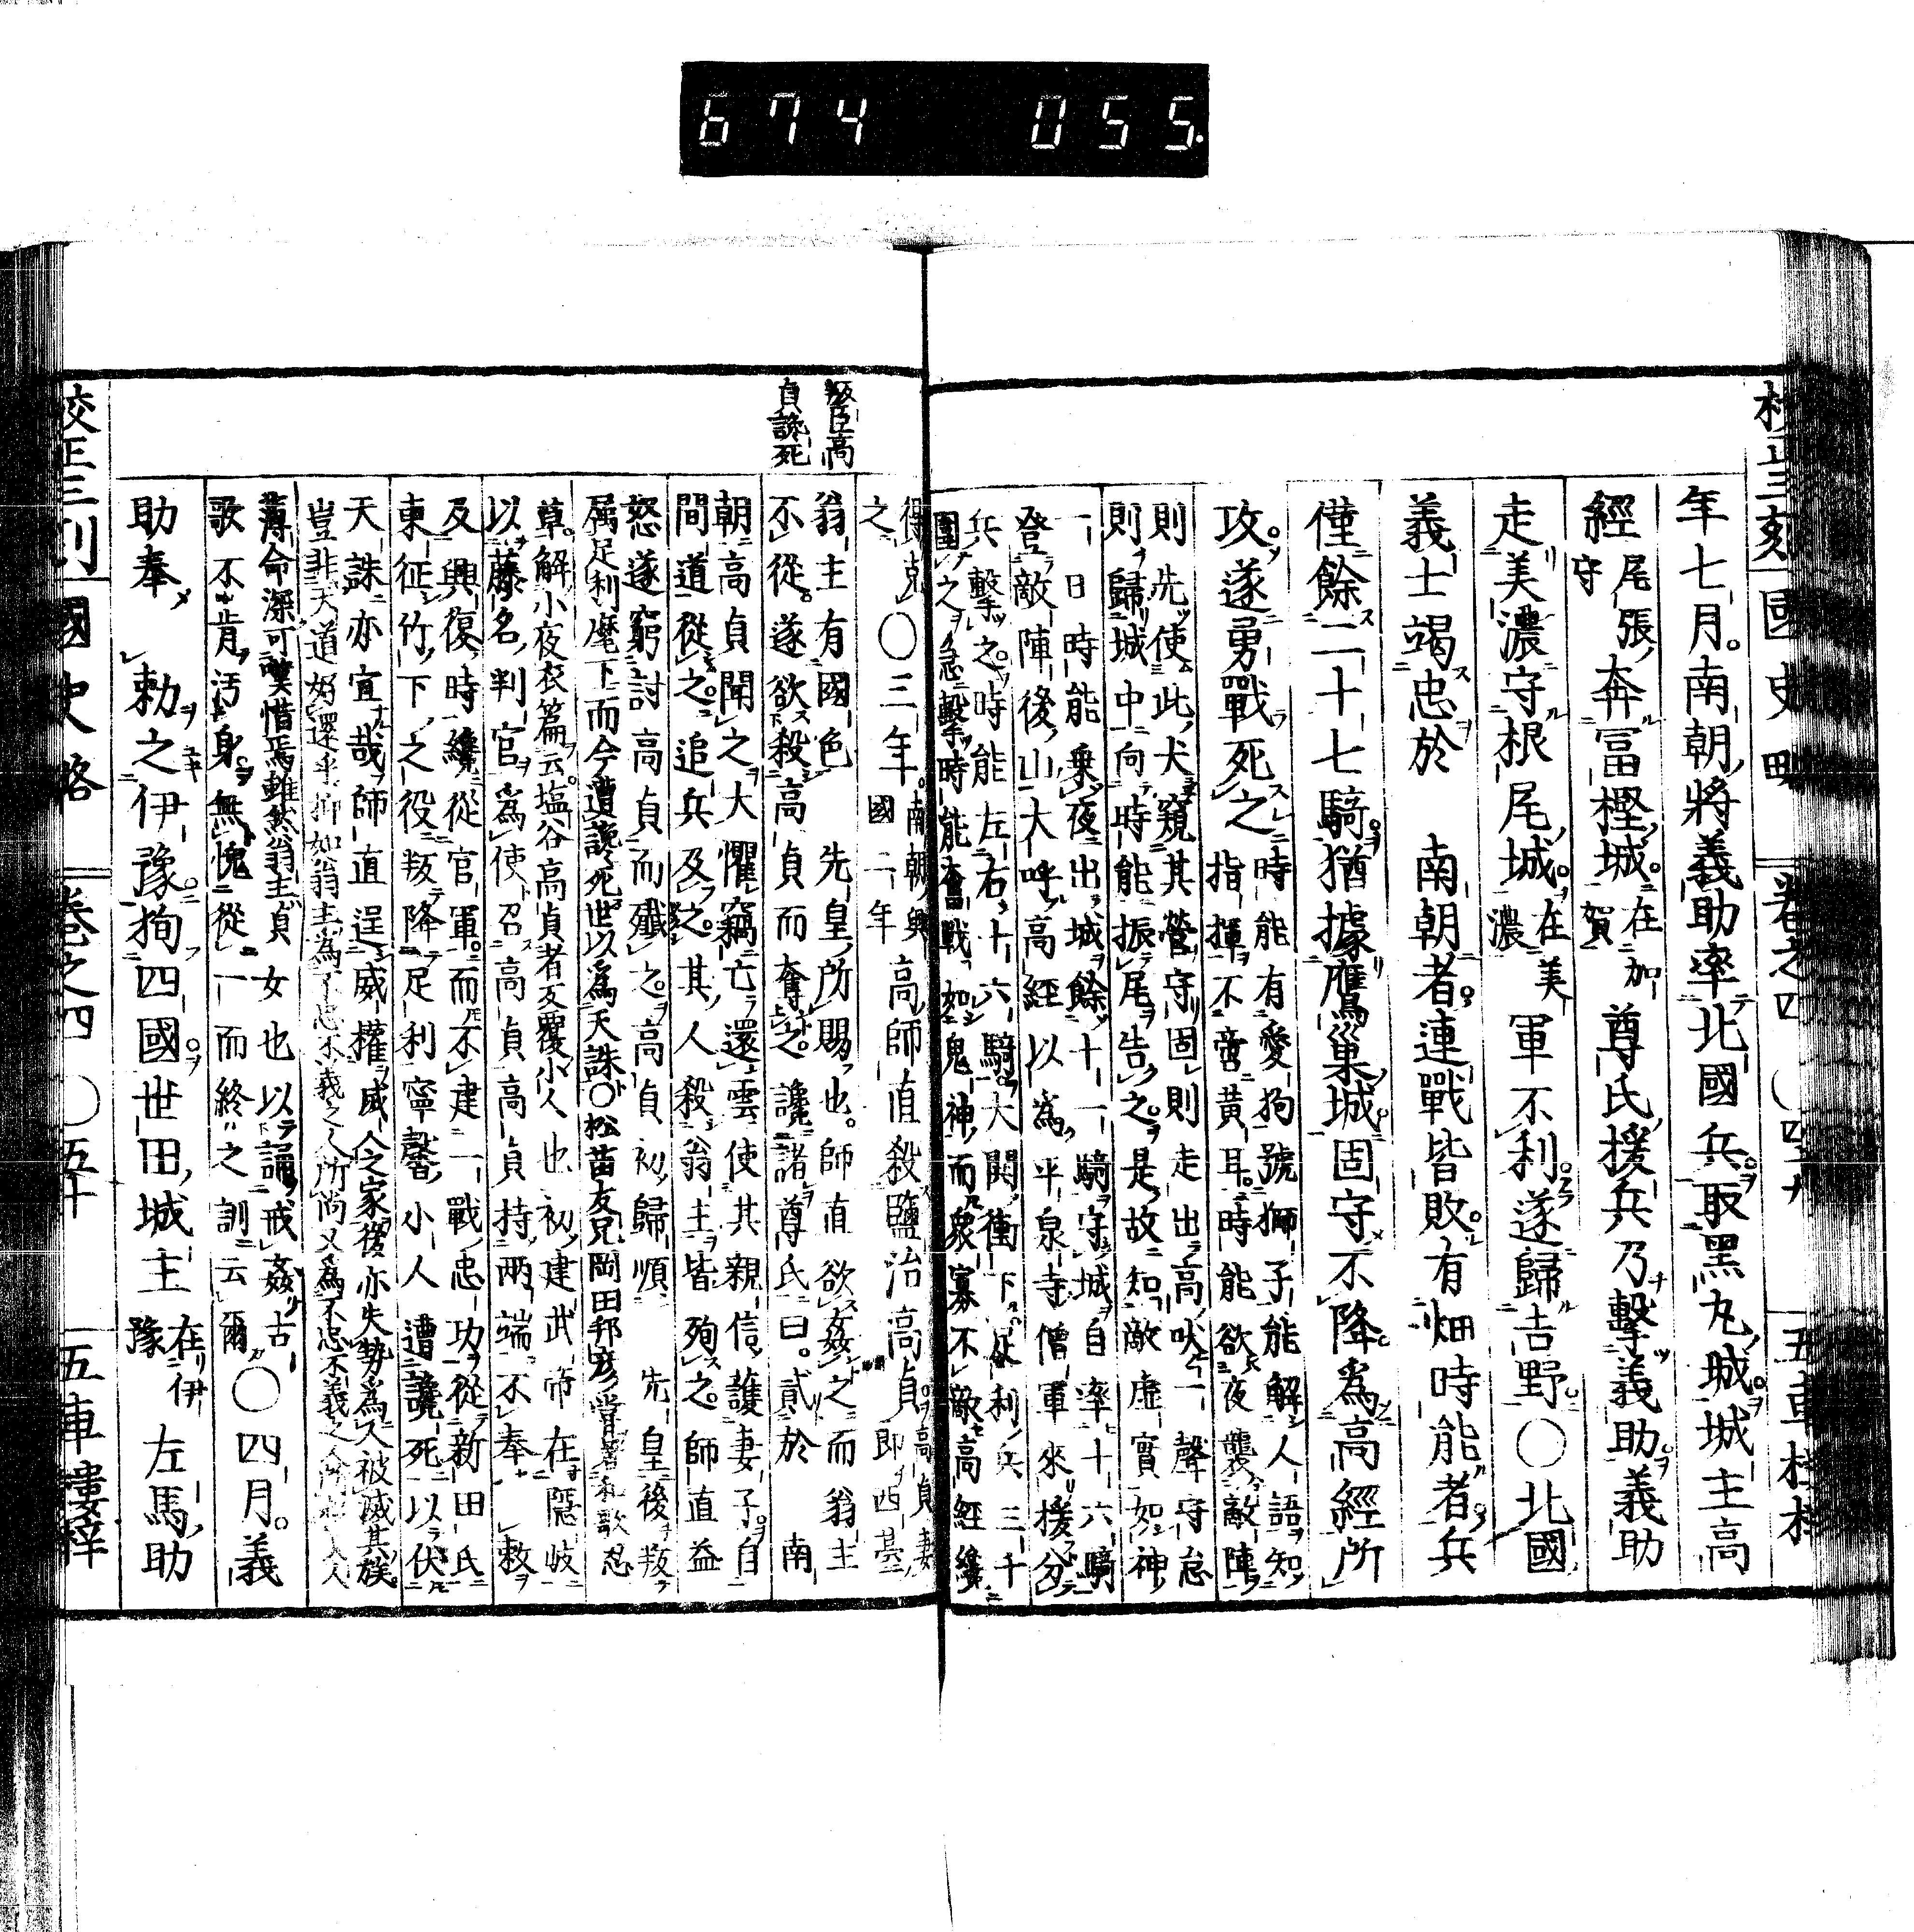 674 055
校正三刻 國史略 卷之四 ○四十九 五車樓梓
年七月。南朝將義助率北國兵。取黑丸城。城主高
經尾張守奔冨樫城。在加賀尊氏援兵乃擊義助。義助
走美濃守根尾城。在美濃軍不利。遂歸吉野。○北國
義士竭忠於 南朝者。連戰皆敗。有畑時能者。兵
僅餘二十七騎。猶據鷹巢城。固守不降。爲高經所
攻。遂勇戰死之
時能有愛狗號獅子。能解人語。知
指揮。不啻黃耳。時能欲夜襲敵陣。
則先使此犬窺其營。守固則走出高吠一聲。守怠
則歸城中。向時能振尾告之。是故知敵虛實如神。
一日時能乘夜出城。餘十一騎守城。自率十六騎
登敵陣後山大呼。高經以爲平泉寺僧軍來援。分
兵擊之。時能左右十六騎。大開衝下。足利兵三千
圍之急擊。時能奮戰如鬼神。而衆寡不敵。高經纔
得克之
○三年。南朝興國二年高師直殺鹽冶高貞。高貞妻即西臺
翁主有國色。 先皇所賜也。師直欲姦之。而翁主
不從。遂欲殺高貞而奪之。讒諸尊氏曰。貳於 南
朝。高貞聞之大懼。竊亡還雲。使其親信護妻子。自
間道從之。追兵及之。其人殺翁主。皆殉之。師直益
怒。遂窮討高貞而殲之。高貞初歸順 先皇。後叛
属足利麾下。而今遭讒死。世以爲天誅○松苗友兄岡田邦彦嘗著和歌忍
草。解小夜衣篇云。塩谷高貞者反覆小人也。初建武帝在隱岐
以藤名判官爲使。召高貞。高貞持兩端不奉 敕。
反興復時。纔從官軍。而不建一戰忠功。從新田氏
東征。竹下之役。叛降足利。寧馨小人遭讒死。以伏
天誅。亦宜哉。師直逞威權。
豈非天道好還乎。抑如翁主。
薄命深可嘆惜焉。雖然翁主貞女也。以誦戒姦古
歌。不肯汚身。無愧從一而終之訓云爾
○四月。義
助奉 勅之伊豫。狥四國。世田城主在伊豫左馬助
叛臣高
貞讒死
校正三刻 國史略 卷之四 ○五十 五車樓梓